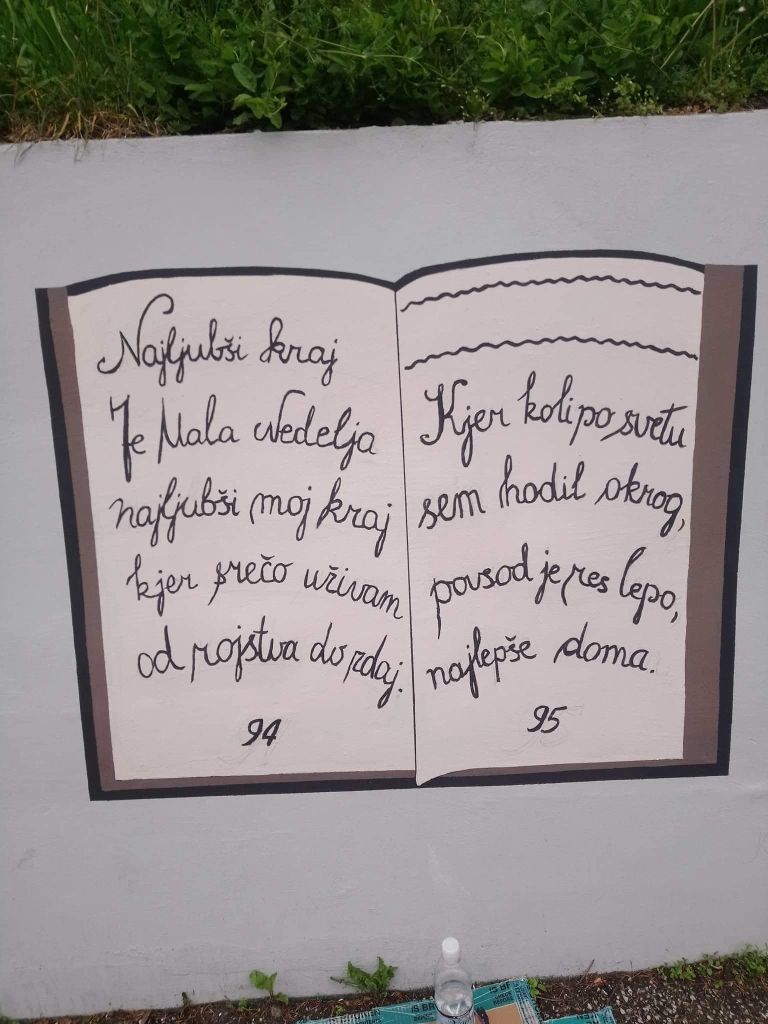 Najljubši kraj
Je Mala Nedelja
najljubši moj kraj
kjer srečo uživam
od rojstva do zdaj.
94
Kjer koli po svetu
sem hodil okrog,
povsod je res lepo,
najlepše doma.
95
IS BR